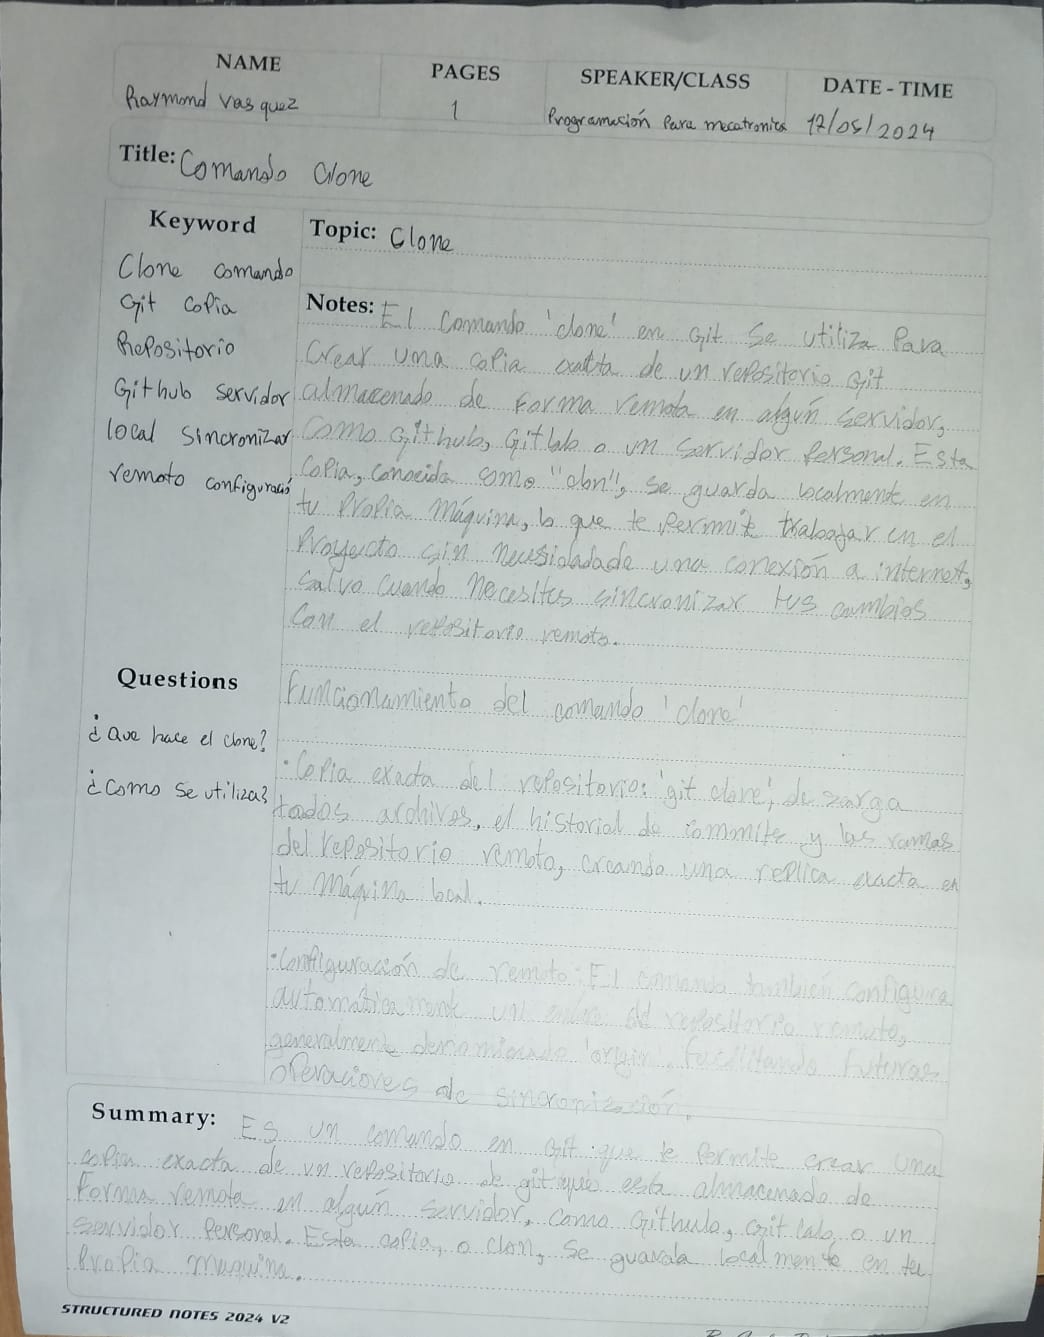 NAME PAGES SPEAKER/CLASS DATE - TIME
Raymond Vasquez 1 Programación Para mecatronica 17/05/2024
Title: Comando Clone
Keyword
Clone comando
Git Copia
Repositorio
Github servidor
local Sincronizar
remoto configuració
Topic: Clone
Notes: El Comando 'clone' en Git Se utiliza Para
Crear una copia exacta de un repositorio Git
almacenado de forma remota en algún servidor,
Como Github, Gitlab o un servidor Personal. Esta
Copia, conocida como "clon", se guarda localmente en
tu Propia máquina, lo que te permite trabajar en el
Proyecto sin necesidadade una conexión a internet,
salvo cuando necesites sincronizar tus cambios
Con el repositorio remoto.
Questions
¿Que hace el clone?
¿Como se utiliza?
Funcionamiento del comando 'clone'
• Copia exacta del repositorio: 'git clone', de zarga
todos archivos, el historial de commits y las ramas
del repositorio remoto, creando una replica exacta en
tu máquina local.
• Configuración de remoto: El comando también configura
automáticamente un enlace del repositorio remoto,
generalmente denominado 'origin', facilitando futuras
operaciones de sincronización.
Summary: Es un comando en Git que te Permite crear una
copia exacta de un repositorio de git que está almacenado de
Forma remota en algún servidor, como Github, Gitlab o un
servidor Personal. Esta copia, o clon, se guarda localmente en tu
Propia maquina.
STRUCTURED NOTES 2024 V2